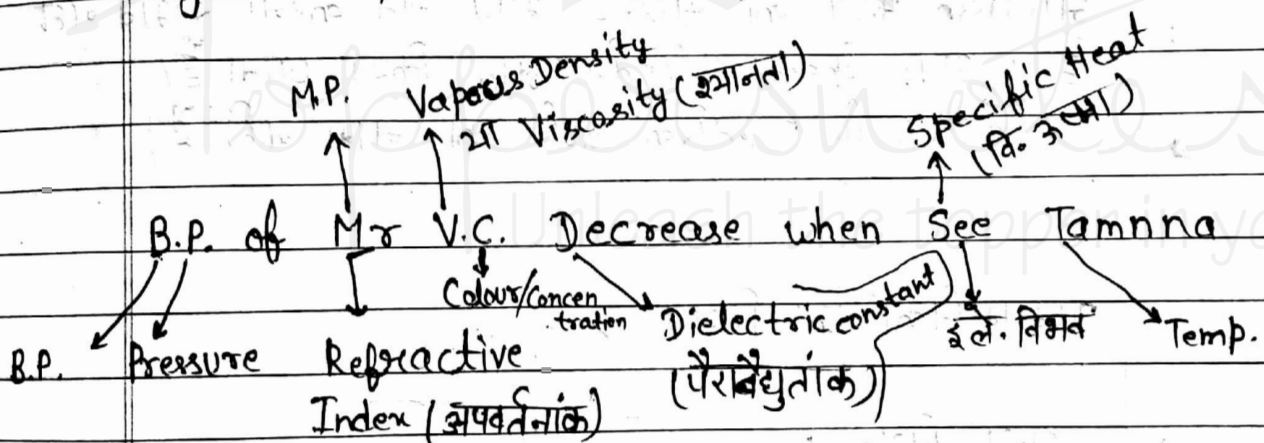 M.P. Vapous Density
या Viscosity (श्यानता)
Specific Heat
(वि. ऊष्मा)
B.P. of Mr V.C. Decrease when See Tamnna
Colour/Concen
tration
Dielectric constant
(पैरावैद्युतांक)
इले. विभव
Temp.
B.P. Pressure Refractive
Index (अपवर्तनांक)